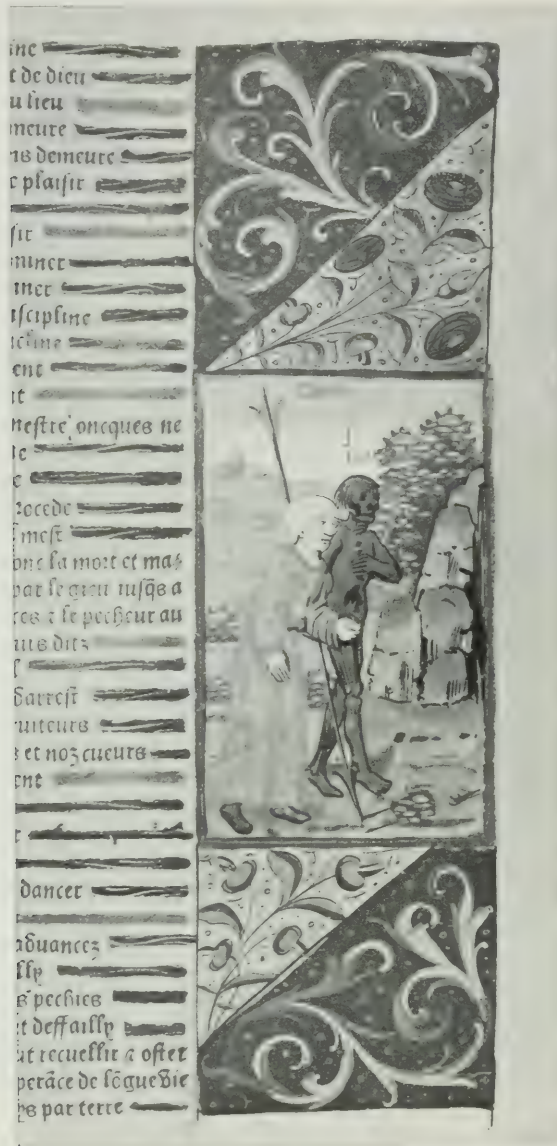 ine
t de dieu
u lieu
meure
ns demeure
c plaisir
sir
miner
iner
iscipline
icline
ent
it
nestre oncques ne
te
e
rocede
mest
onc la mort et mas
par le gieu iusqs a
ces ⁊ le pecheur au
uis ditz
l
darrest
ruiteurs
s et noz cueurs
ent
r
dancer
aduancez
lly
s pechies
it deffailly
ut recuellir a oster
perãce de lõgue vie
ps par terre